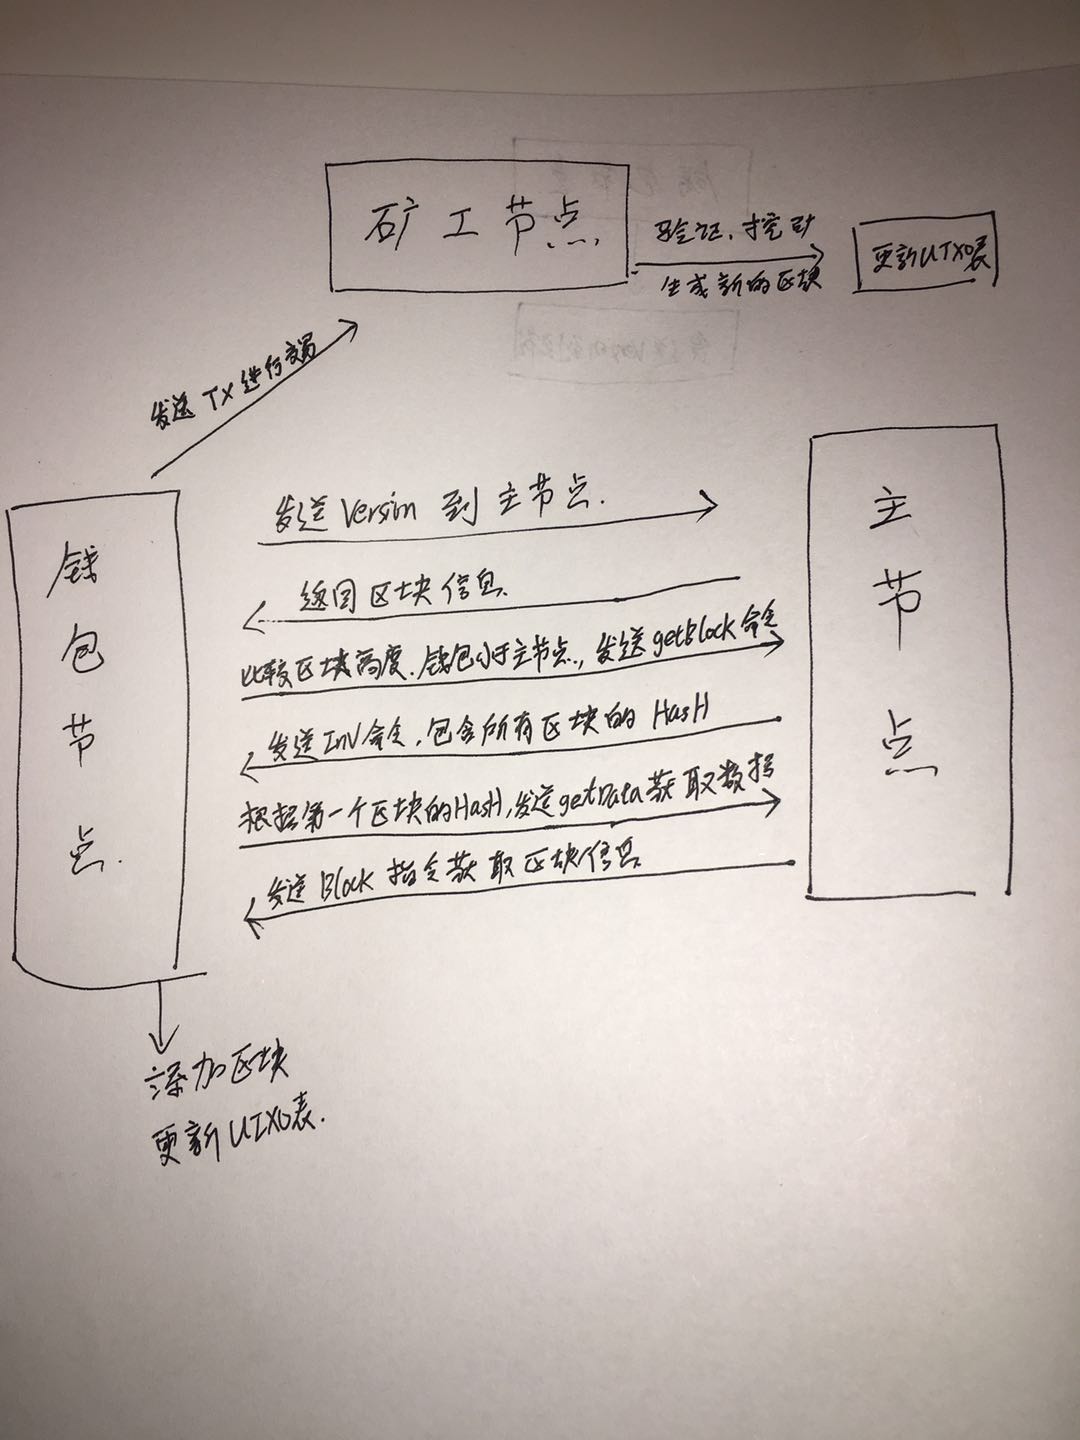 矿工节点
验证、挖矿
生成新的区块
更新UTXO表
发送 TX 进行交易
发送 Version 到 主节点.
返回区块信息
比较区块高度.钱包小于主节点,发送getBlock命令
发送Inv命令,包含所有区块的 HasH
根据第一个区块的HasH,发送getData获取数据
发送 Block 指令获取区块信息
钱包节点.
主节点
添加区块
更新UTXO表.